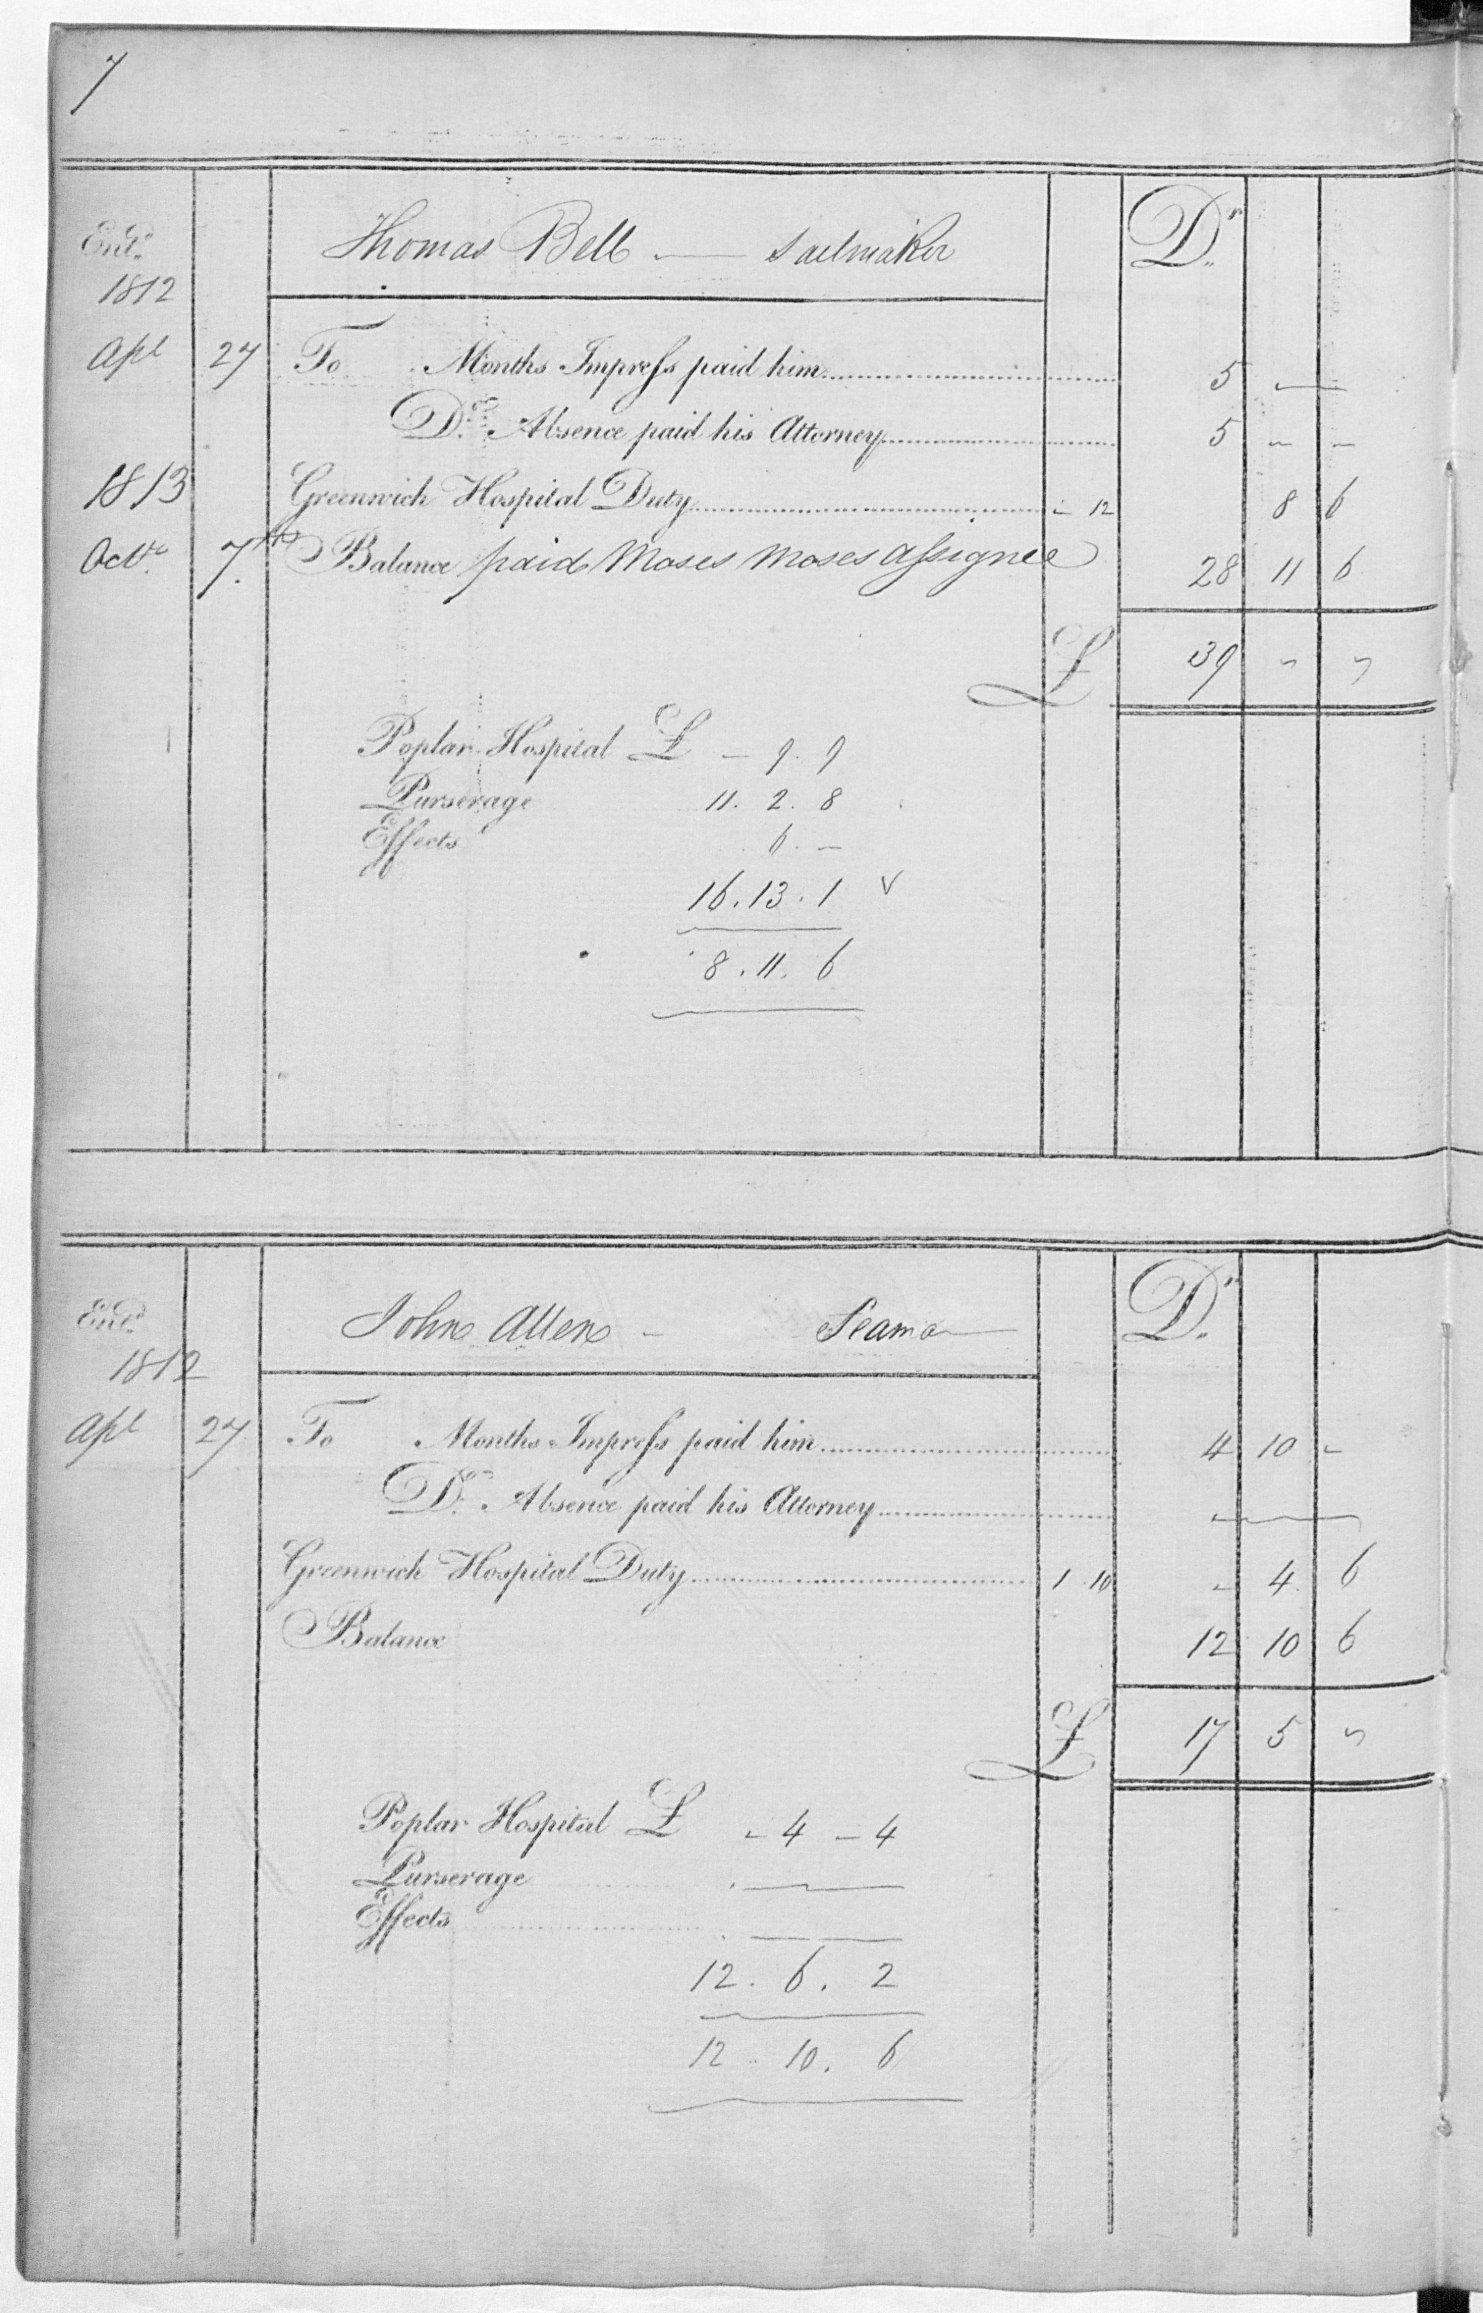 7
Ent.d Thomas Bell — Sailmaker Dr.
1812
Apl 27 To Months Impress paid him 5 — —
Do. Absence paid his Attorney 5 — —
1813 Greenwich Hospital Duty - 12 8 6
Octr. 7. Balance paid Moses Moses assignee 28 11 6
£ 39 " "
Poplar Hospital £ - 9. 9
Purserage 11. 2. 8
Effects 6. —
16. 13. 1 v
8. 11. 6
Ent.d John Allen - Seaman Dr.
1812
Apl 27 To Months Impress paid him 4 10 -
Do. Absence paid his Attorney —
Greenwich Hospital Duty 1 10 - 4 6
Balance 12 10 6
£ 17 5 "
Poplar Hospital £ - 4 - 4
Purserage —
Effects —
12. 6. 2
12. 10. 6